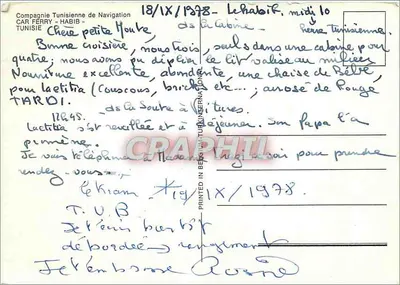 Compagnie Tunisienne de Navigation
CAR FERRY - HABIB -
TUNISIE
18/IX/1978 - Le Habib midi 10
de la cabine - heure tunisienne.
Chère petite
Bonne croisière, nous trois, seuls dans une cabine pour
quatre; nous avons pu déplier le lit valise au milieu
Nourriture excellente, abondante, une chaise de Bébé,
pour Laetitia (couscous, bricks etc...; arrosé de Rouge
TARDI.
de la Soute à Voitures.
12h45.
Laetitia s'est réveillée et a déjeuner. Son papa l'a
promène.
Je vous téléphone à soir pour prendre
rendez-vous
le Kram 19/IX/1978.
T.V.B
Je t'écris bientôt
débordée rangement
Je t'embrasse
PRINTED IN
CPAPHIL